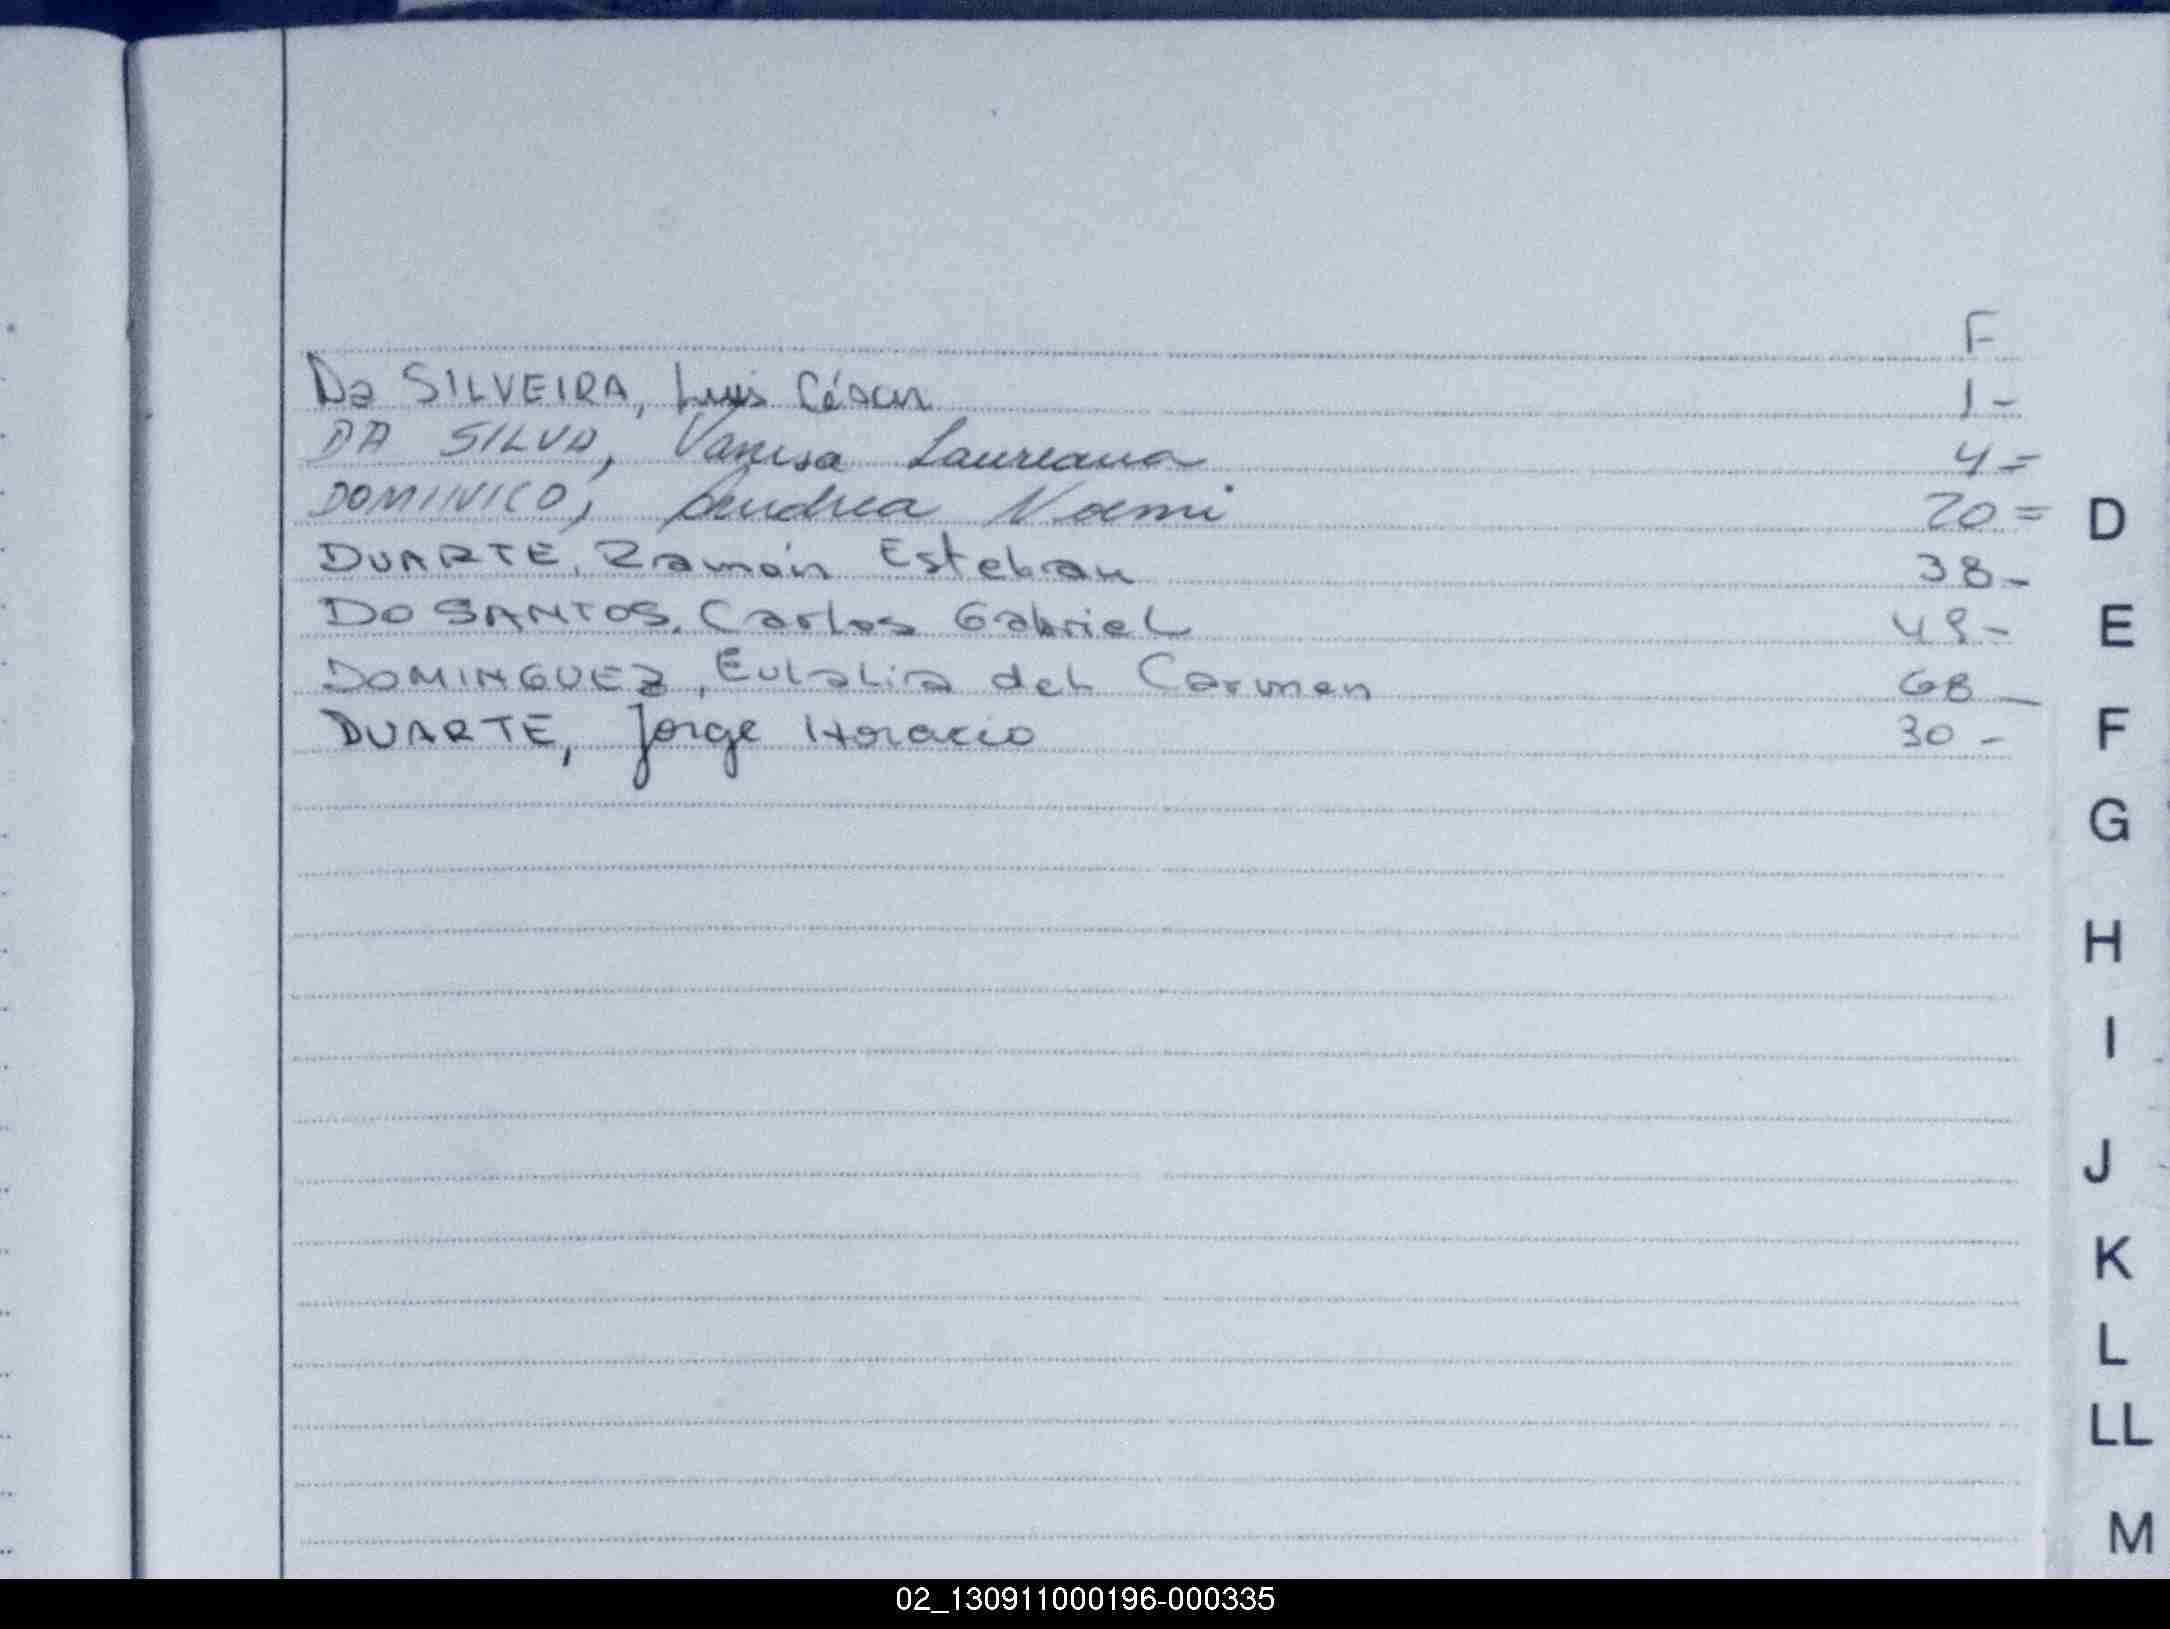 F
Da SILVEIRA, Luis César 1-
DA SILVA, Vanesa Laureana 4=
DOMINICO, Andrea Noemi 20=
DUARTE, Ramón Esteban 38-
DO SANTOS, Carlos Gabriel 49-
DOMINGUEZ, Eulalia del Carmen 68-
DUARTE, Jorge Horacio 30-
D
E
F
G
H
I
J
K
L
LL
M
02_130911000196-000335